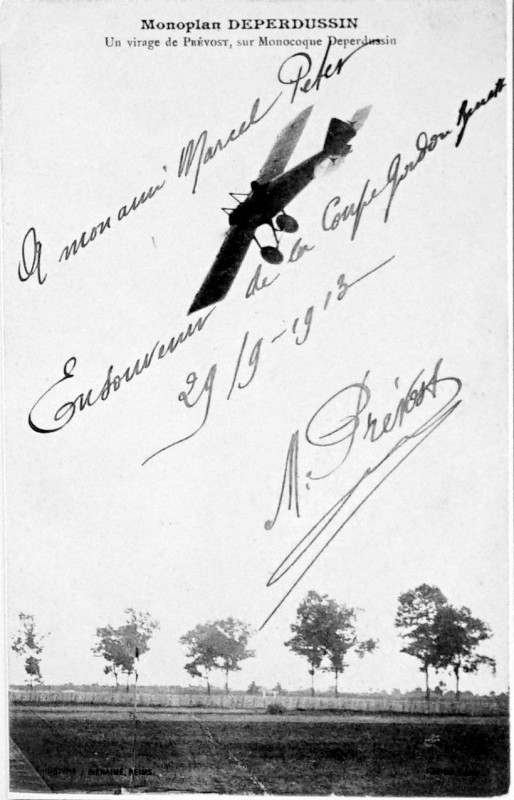 Monoplan DEPERDUSSIN
Un virage de PRÉVOST, sur Monocoque Deperdussin
A mon ami Marcel Peter
En souvenir de la Coupe Gordon Benett
29/9-1913
M. Prévost
REIMS.